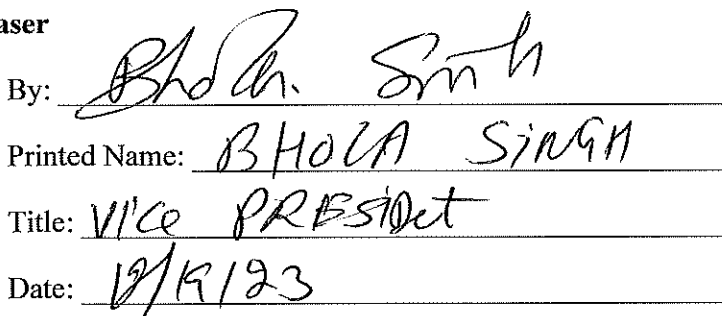 aser
By: Bhola Singh
Printed Name: BHOLA SINGH
Title: Vice PRESiDet
Date: 12/19/23